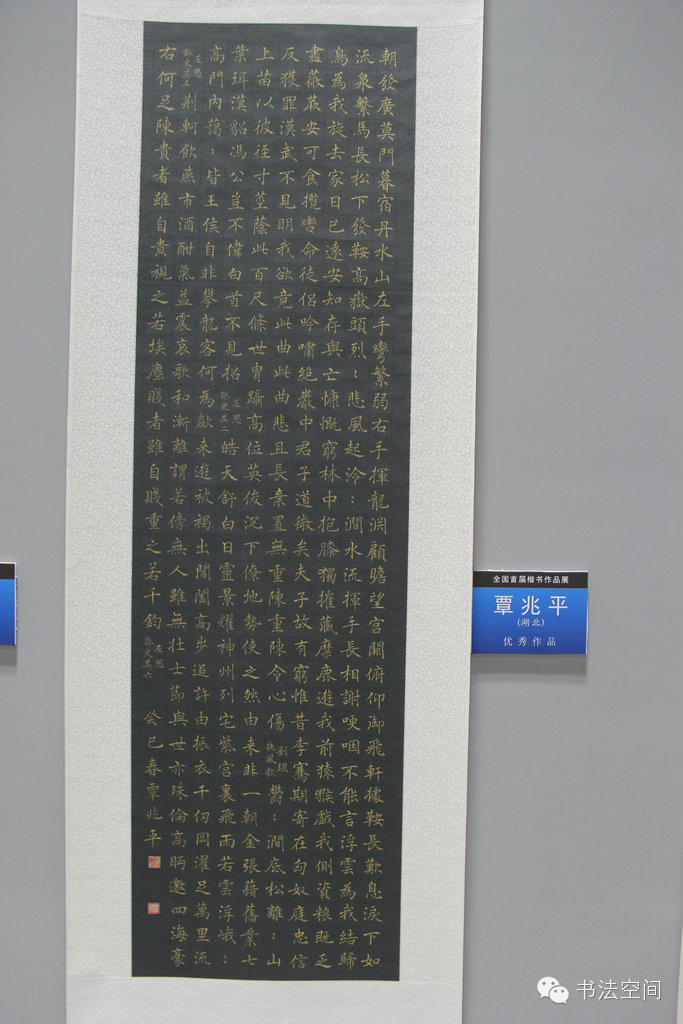 朝發廣莫門暮宿丹水山左手彎繁弱右手揮龍淵顧瞻望宮闕俯仰御飛軒據鞍長歎息淚下如
流泉繫馬長松下發鞍高嶽頭烈：悲風起泠：澗水流揮手長相謝哽咽不能言浮雲為我結歸
鳥為我旋去家日已遠安知存與亡慷慨窮林中抱膝獨摧藏麋鹿遊我前猿猴戲我側資粮既乏
盡薇蕨安可食攬轡命徒侶吟嘯絕巖中君子道微矣夫子故有窮惟昔李騫期寄在匈奴庭忠信
反獲罪漢武不見明我欲竟此曲此曲悲且長棄置無重陳重陳令心傷劉琨扶風歌鬱：澗底松離：山
上苗以彼徑寸莖蔭此百尺條世胄躡高位英俊沉下僚地勢使之然由來非一朝金張藉舊業七
葉珥漢貂馮公豈不偉白首不見招左思詠史其二皓天舒白日靈景耀神州列宅紫宮裏飛雨若雲浮峨：
高門內藹：皆王侯自非攀龍客何為欻來遊被褐出閶闔高步追許由振衣千仞岡濯足萬里流
左思詠史其五荊軻飲燕市酒酣氣益震哀歌和漸離謂若傍無人雖無壯士節與世亦殊倫高眄邈四海豪
右何足陳貴者雖自貴視之若埃塵賤者雖自賤重之若千鈞左思詠史其六癸巳春覃兆平
全国首届楷书作品展
覃兆平
(湖北)
优秀作品
书法空间